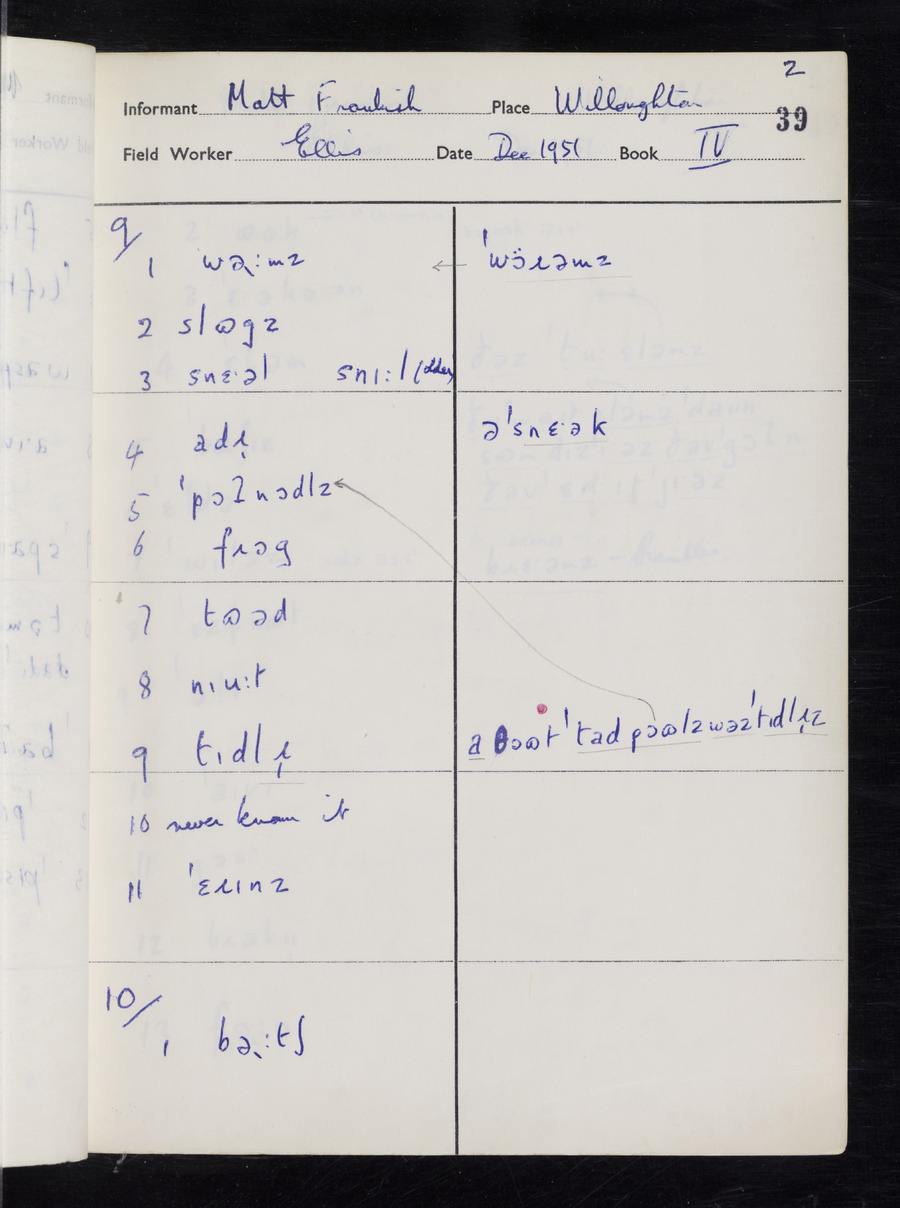 2
Informant Matt Frankish Place Willoughton 39
Field Worker Ellis Date Dec 1951 Book IV
9/
1 wə˞:mz ← ˈwɔ̈ɹəmz
2 slɷgz
3 snɛ·əl snɪ:l (older)
ə ˈsnɛ·ək
4 adɪ̣
5 ˈpɔʊnɔdlz
6 fɹɔg
7 tɷəd
8 nɪu:t
9 tɪdlɪ̣
a θɔɷt ˈtad pɔɷlz wəz ˈtɪdlɪ̣z
10 never known it
11 ˈɛɹɪnz
10/
1 bə˞:tʃ